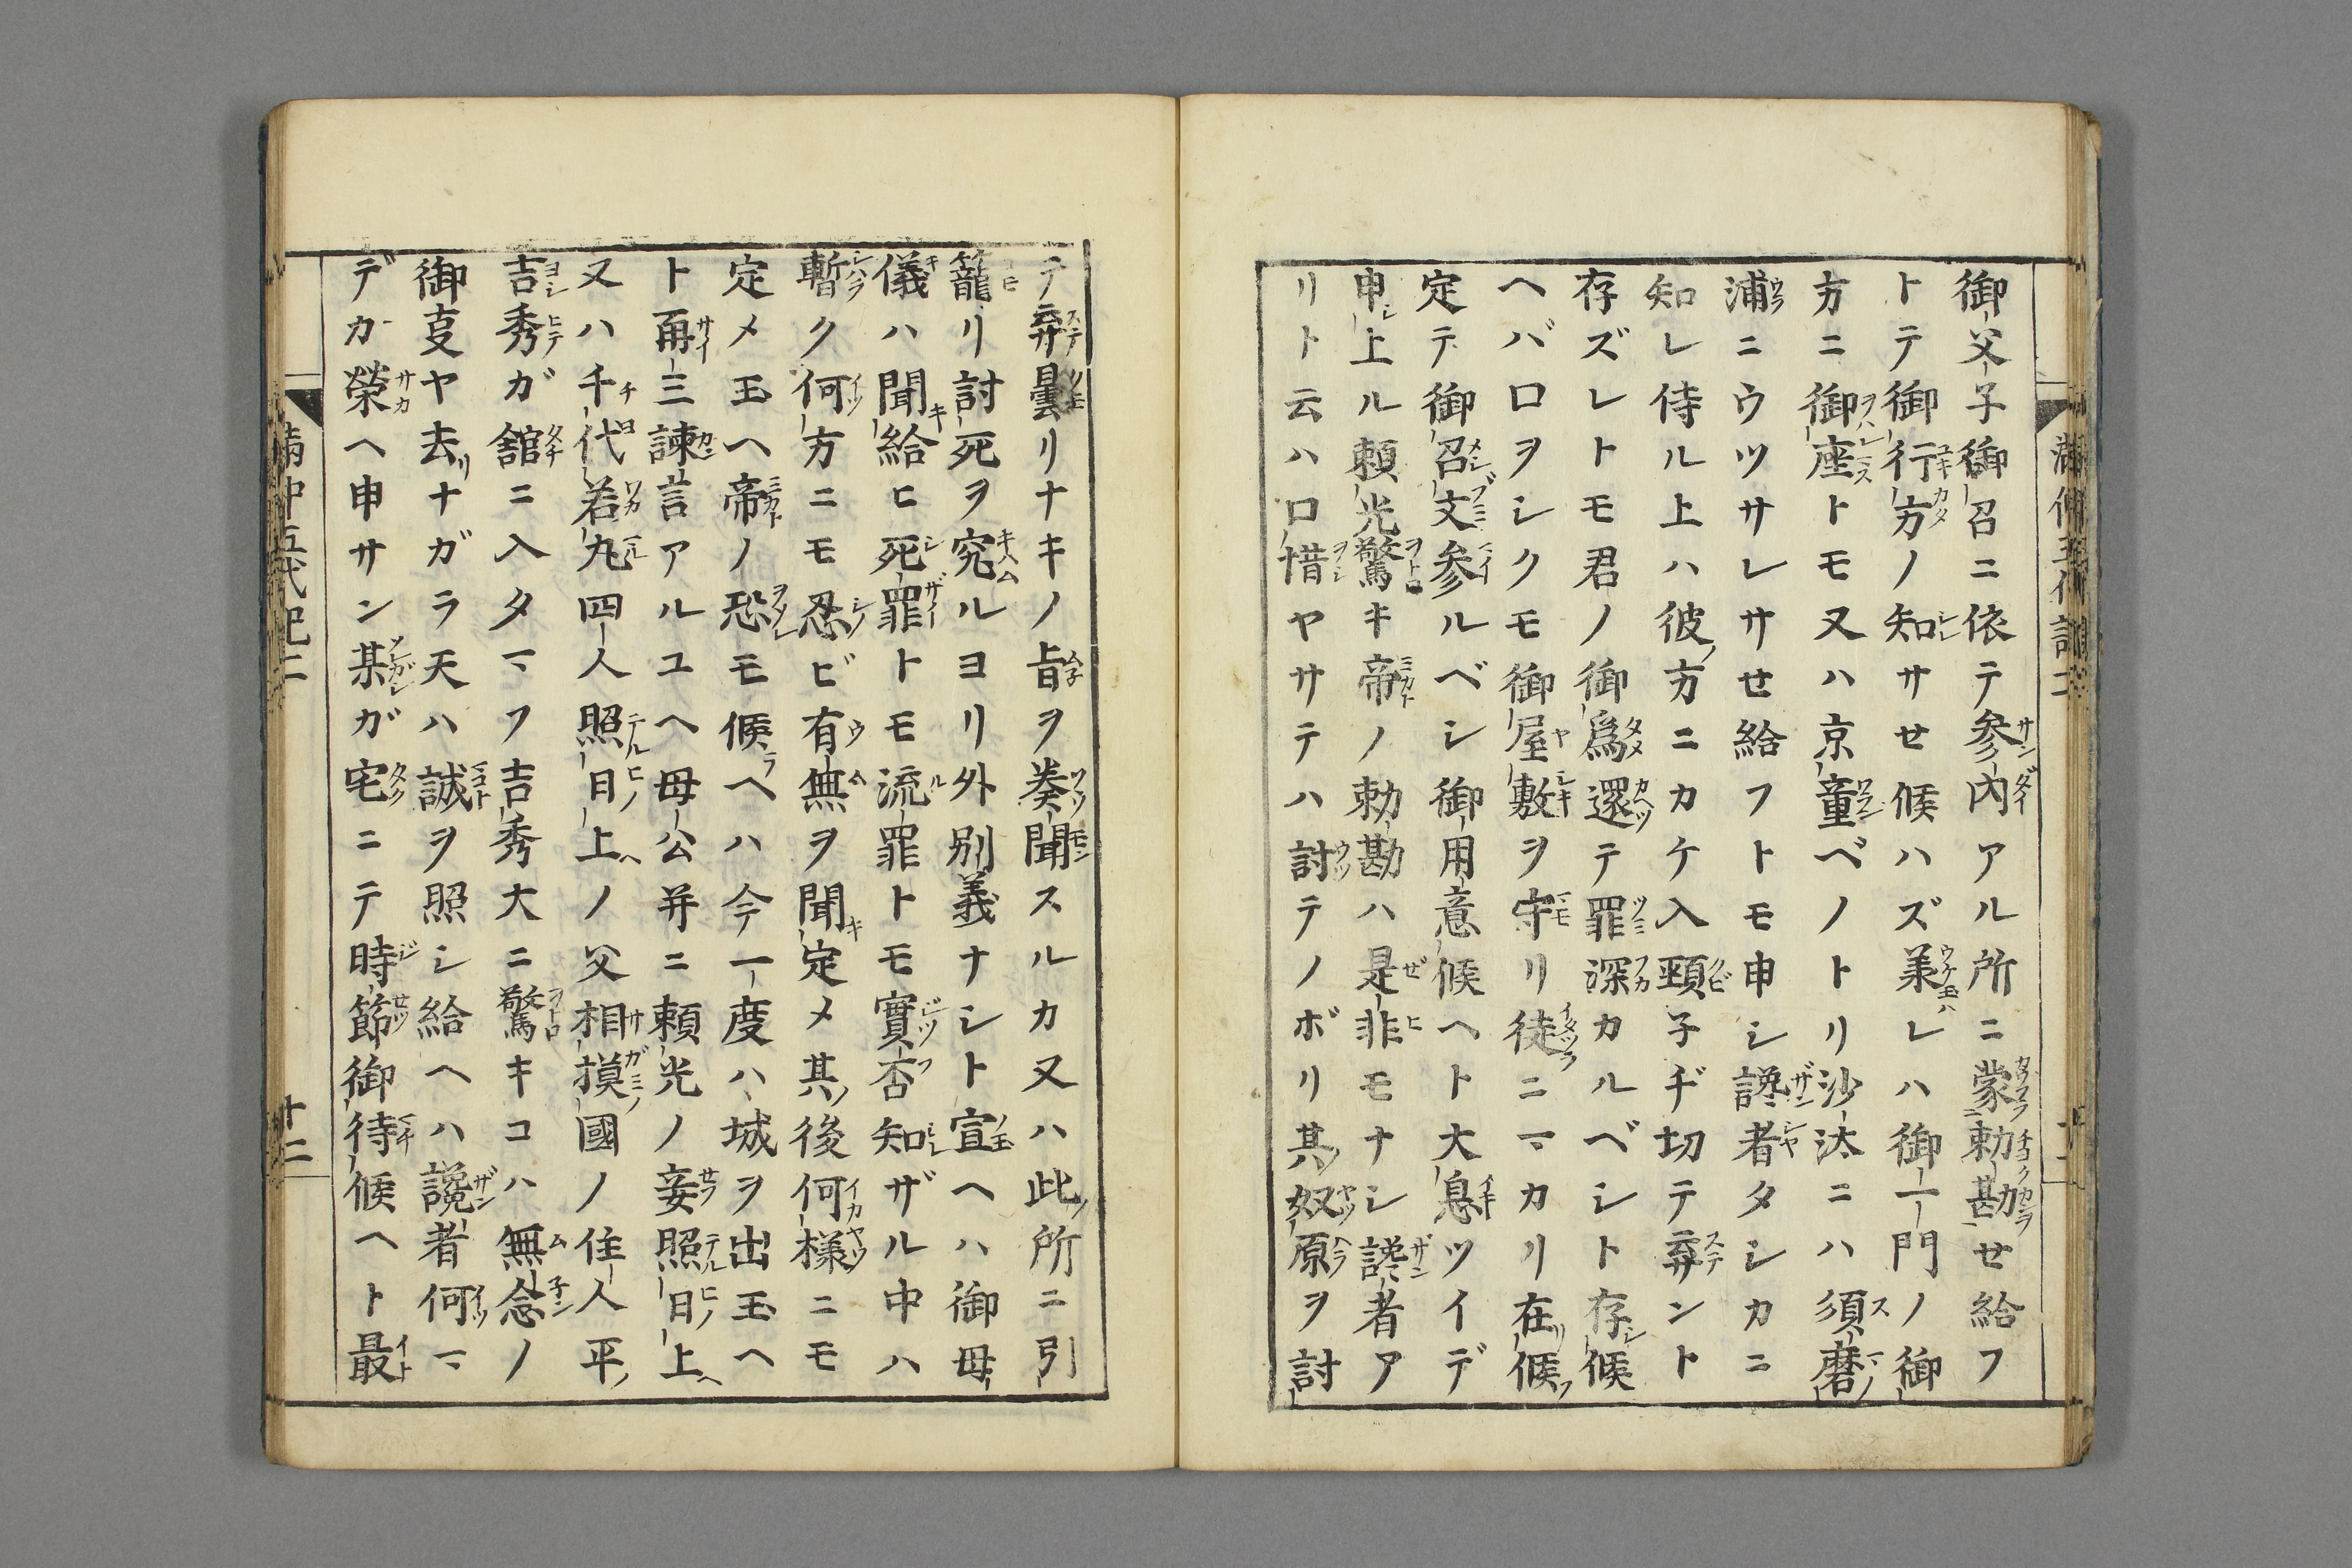 御父子御召ニ依テ参內アル所ニ蒙勅勘せ給フ
トテ御行方ノ知サせ候ハズ美レハ御一門ノ御
方ニ御座トモ又ハ京童ベノトリ沙汰ニハ須磨
浦ニウツサレサせ給フトモ申シ讒者タシカニ
知レ侍ル上ハ彼方ニカケ入頸子ヂ切テ弃ント
存ズレトモ君ノ御爲還テ罪深カルベシト存候
ヘバロヲシクモ御屋敷ヲ守リ徒ニマカリ在候
定テ御召文参ルベシ御用意候ヘト大息ツイデ
申上ル頼光驚キ帝ノ勅勘ハ是非モナシ讒者ア
リト云ハ口惜ヤサテハ討テノボリ其奴原ヲ討
テ弃曇リナキノ旨ヲ奏聞スルカ又ハ此所ニ引
籠リ討死ヲ究ルヨリ外別義ナシト宣ヘハ御母
儀ハ聞給ヒ死罪トモ流罪トモ實否知ザル中ハ
暫ク何方ニモ忍ビ有無ヲ聞定メ其後何様ニモ
定メ玉ヘ帝ノ恐モ候ヘハ今一度ハ城ヲ出玉ヘ
ト再三諫言アルユヘ母公并ニ頼光ノ妾照日上
又ハ千代若丸四人照日上ノ父相摸國ノ住人平
吉秀ガ舘ニ入タマフ吉秀大ニ驚キコハ無念ノ
御叓ヤ去ナガラ天ハ誠ヲ照シ給ヘハ讒者何マ
デカ榮ヘ申サン某ガ宅ニテ時節御待候ヘト最
満仲五代記二
十二